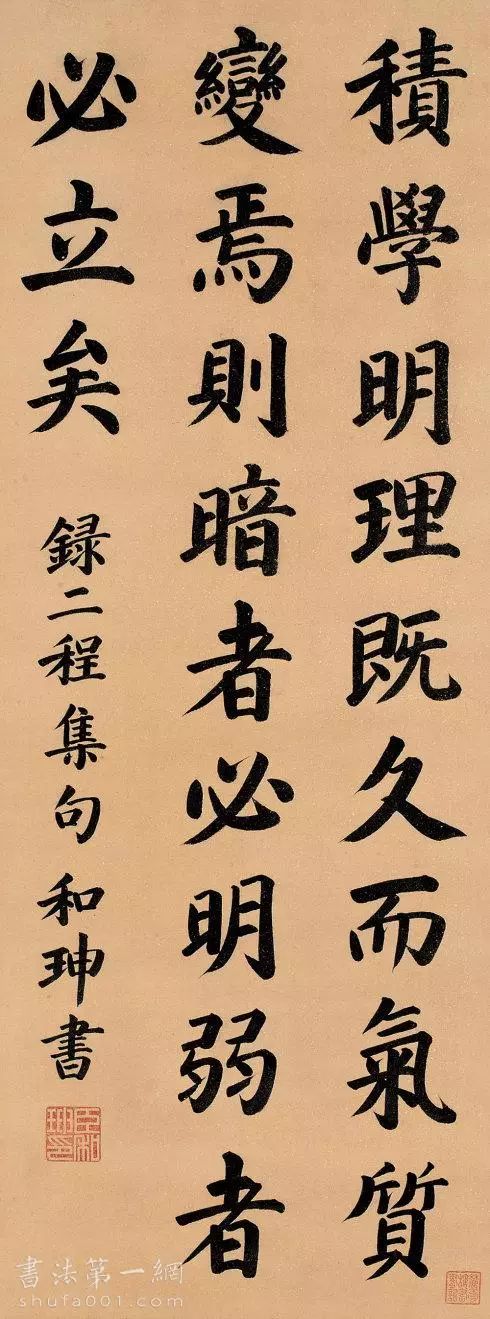 積學明理既久而氣質
變焉則暗者必明弱者
必立矣
録二程集句 和珅書
書法第一網
shufa001.com